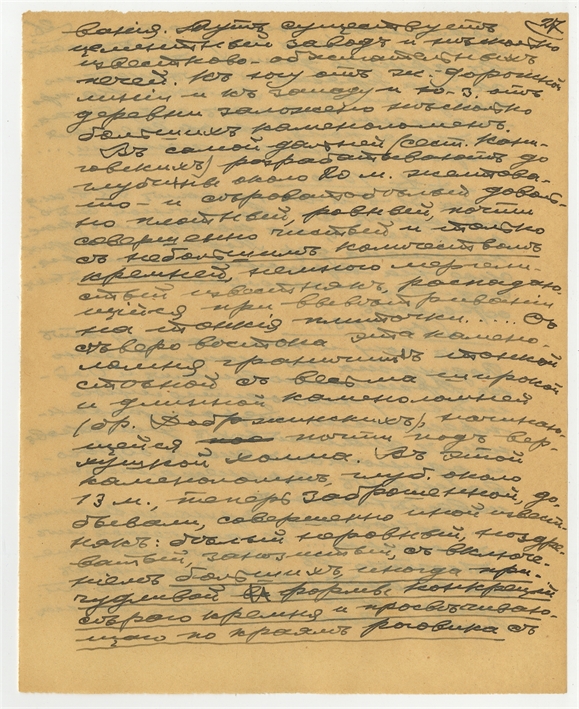 27
ванія. Тутъ существуетъ
цементный заводъ и нѣсколько
известково-обжигательныхъ
печей. Къ югу отъ ж.-дорожной
линіи и къ западу и ю.-з. отъ
деревни заложено нѣсколько
большихъ каменоломенъ.
Въ самой дальней (сест.
) разрабатываютъ до
глубины около 20 м. желтова-
то- и сѣровато-бѣлый доволь-
но плотный, ровный, почти
совершенно чистый и только
съ небольшимъ количествомъ
кремней, немного мергели-
стый известнякъ, распадаю-
щійся при вывѣтриваніи
на тонкія плиточки..... Съ
сѣверо востока эта камено-
ломня граничитъ тонкой
стѣной съ весьма широкой
и длинной каменоломней
(бр. Добржинскихъ), начинаю-
щейся почти подъ вер-
хушкой холма. Въ этой
каменоломнѣ, глуб. около
13 м., теперь заброшенной, до-
бывали, совершенно иной извест-
някъ: бѣлый неровный, ноздре-
ватый, занозистый, съ включе-
ніемъ большихъ, иногда при-
чудливой формы конкрецій
сѣраго кремня и просвѣчиваю-
щаго по краямъ роговика съ